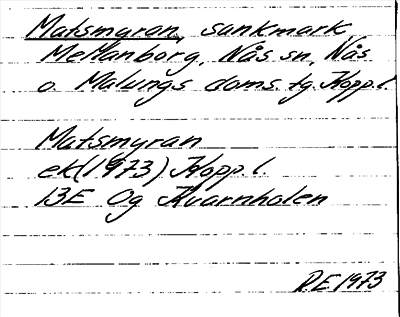 Matsmyran, sankmark
Mellanborg, Nås sn, Nås
o. Malungs doms. tg. Kopp.l.
Matsmyran
ek (1973) Kopp.l.
13E 0g Kvarnholen
R.E. 1973